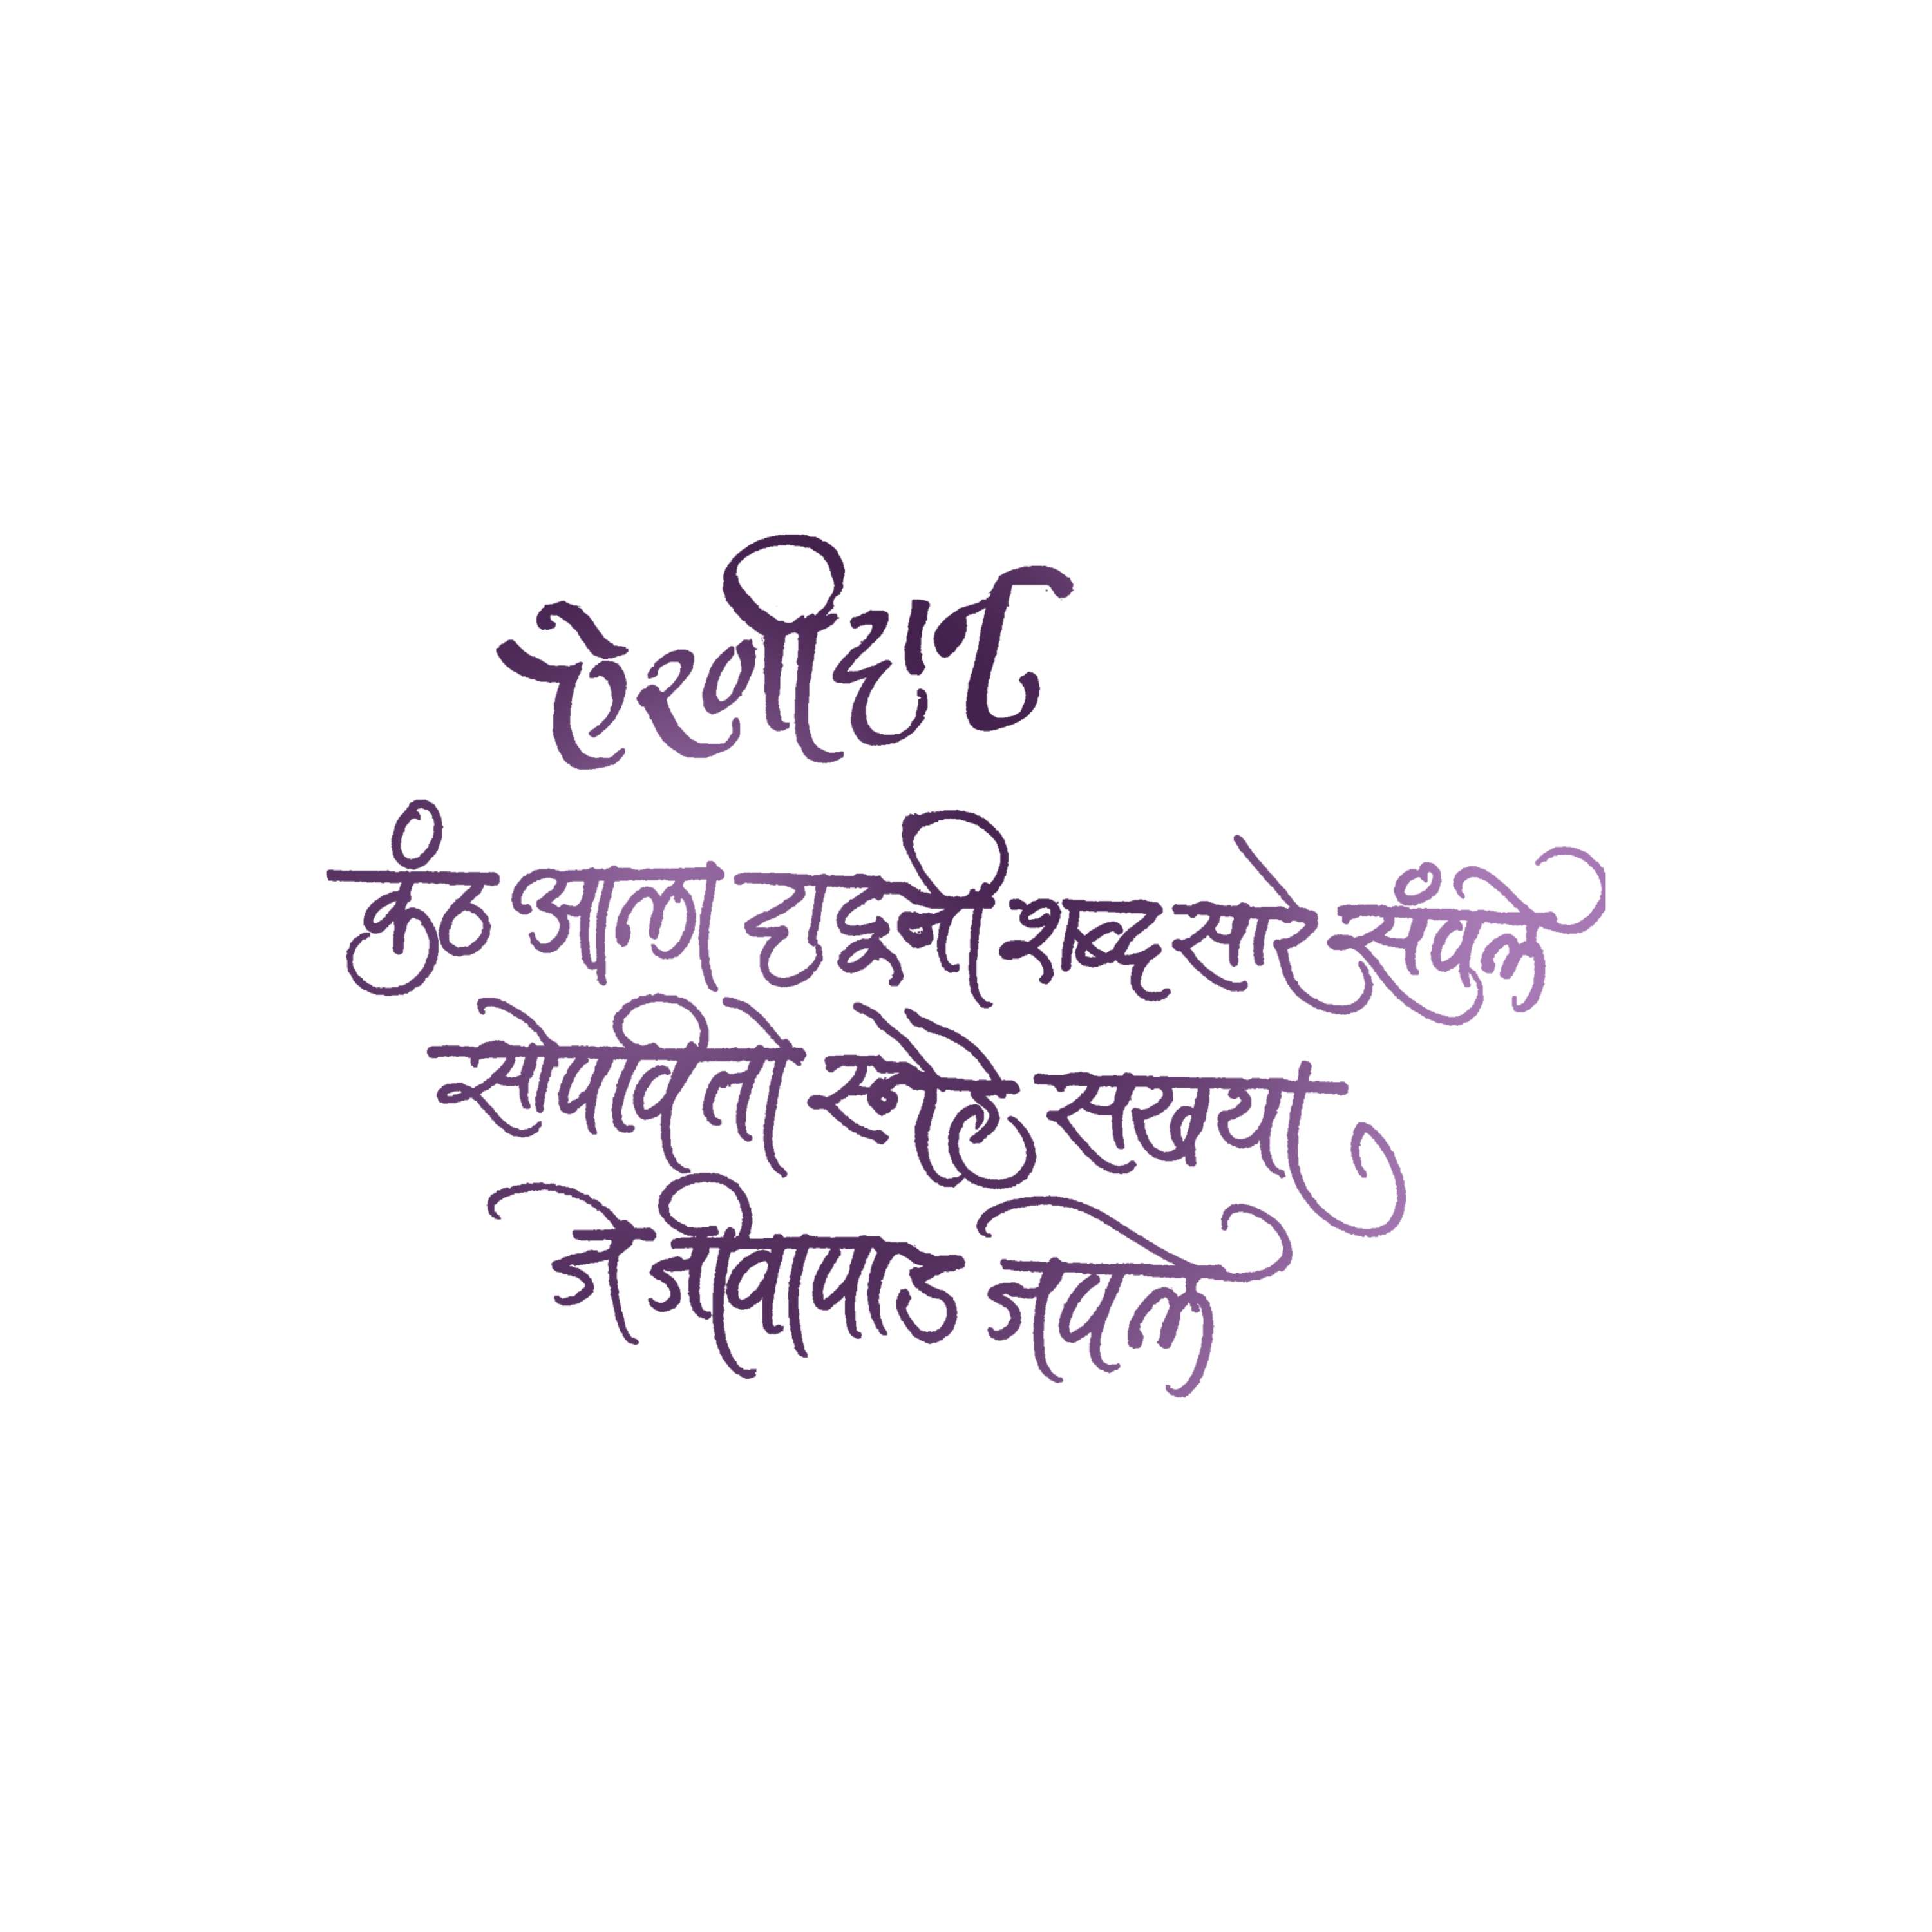 कंठ आला दाटूनी शब्द सारे संपले
सोपवितो स्नेहे सखया
जे जीवापाड जपले